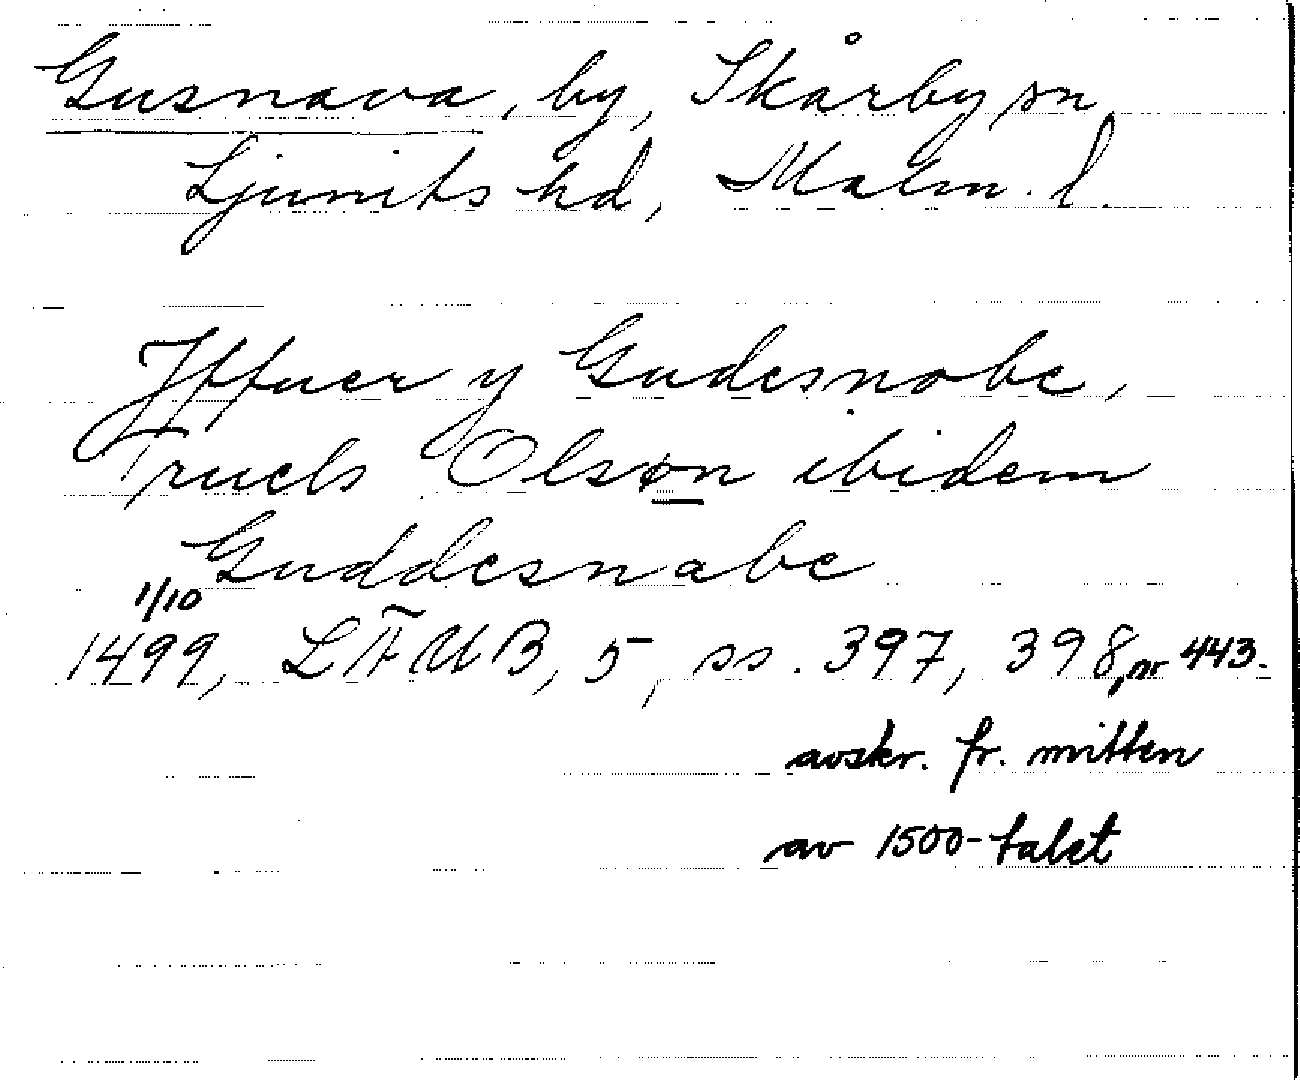 Gusnava, by, Skårby sn,
Ljunits hd, Malm. l.
Jffuer y Gudesnobe,
Truels Olsøn ibidem
Guddesnabe
1/10
1499, LÄUB, 5, ss. 397, 398, nr 443.
avskr. fr. mitten
av 1500-talet